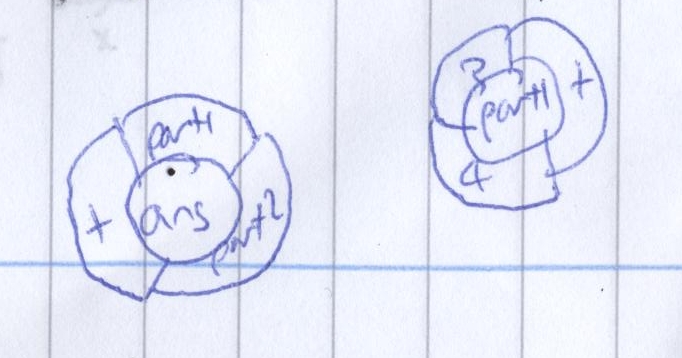 part1
+
ans
part2
3
+
part1
4